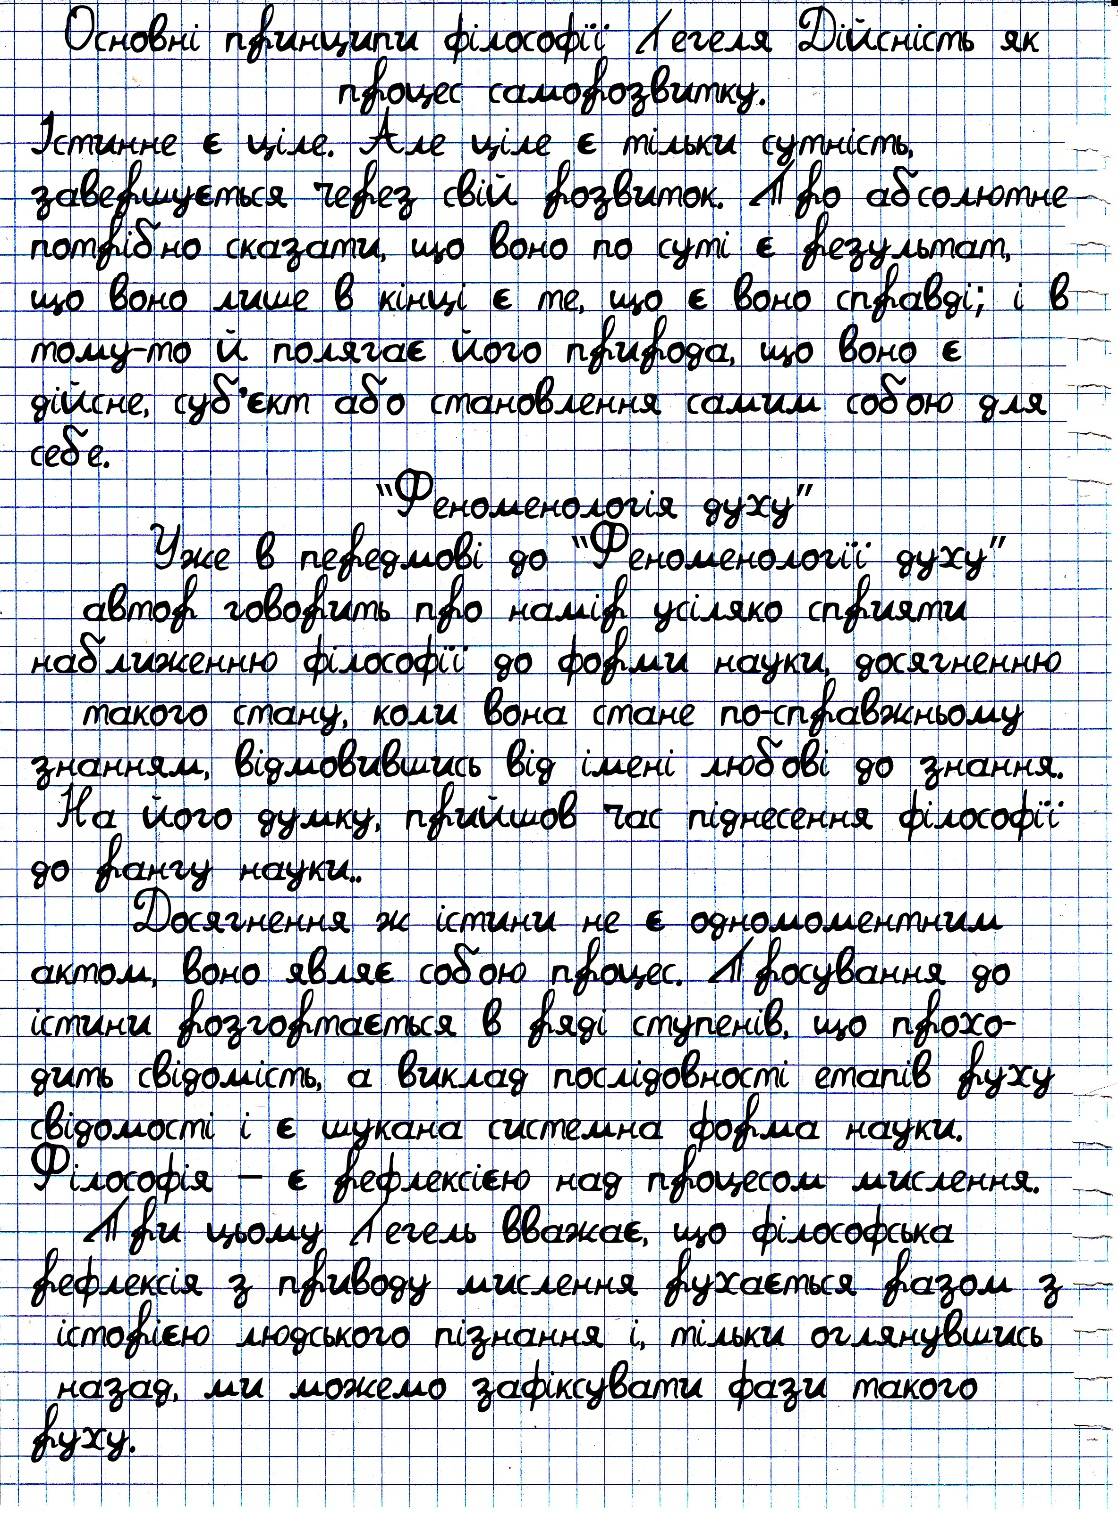 Основні принципи філософії Гегеля Дійсність як
процес саморозвитку.
Істинне є ціле. Але ціле є тільки сутність,
завершується через свій розвиток. Про абсолютне
потрібно сказати, що воно по суті є результат,
що воно лише в кінці є те, що є воно справді; і в
тому-то й полягає його природа, що воно є
дійсне, суб'єкт або становлення самим собою для
себе.
"Феноменологія духу"
Уже в передмові до "Феноменології духу"
автор говорить про намір усіляко сприяти
наближенню філософії до форми науки, досягненню
такого стану, коли вона стане по-справжньому
знанням, відмовившись від імені любові до знання.
На його думку, прийшов час піднесення філософії
до рангу науки..
Досягнення ж істини не є одномоментним
актом, воно являє собою процес. Просування до
істини розгортається в ряді ступенів, що прохо-
дить свідомість, а виклад послідовності етапів руху
свідомості і є шукана системна форма науки.
Філософія – є рефлексією над процесом мислення.
При цьому Гегель вважає, що філософська
рефлексія з приводу мислення рухається разом з
історією людського пізнання і, тільки оглянувшись
назад, ми можемо зафіксувати фази такого
руху.